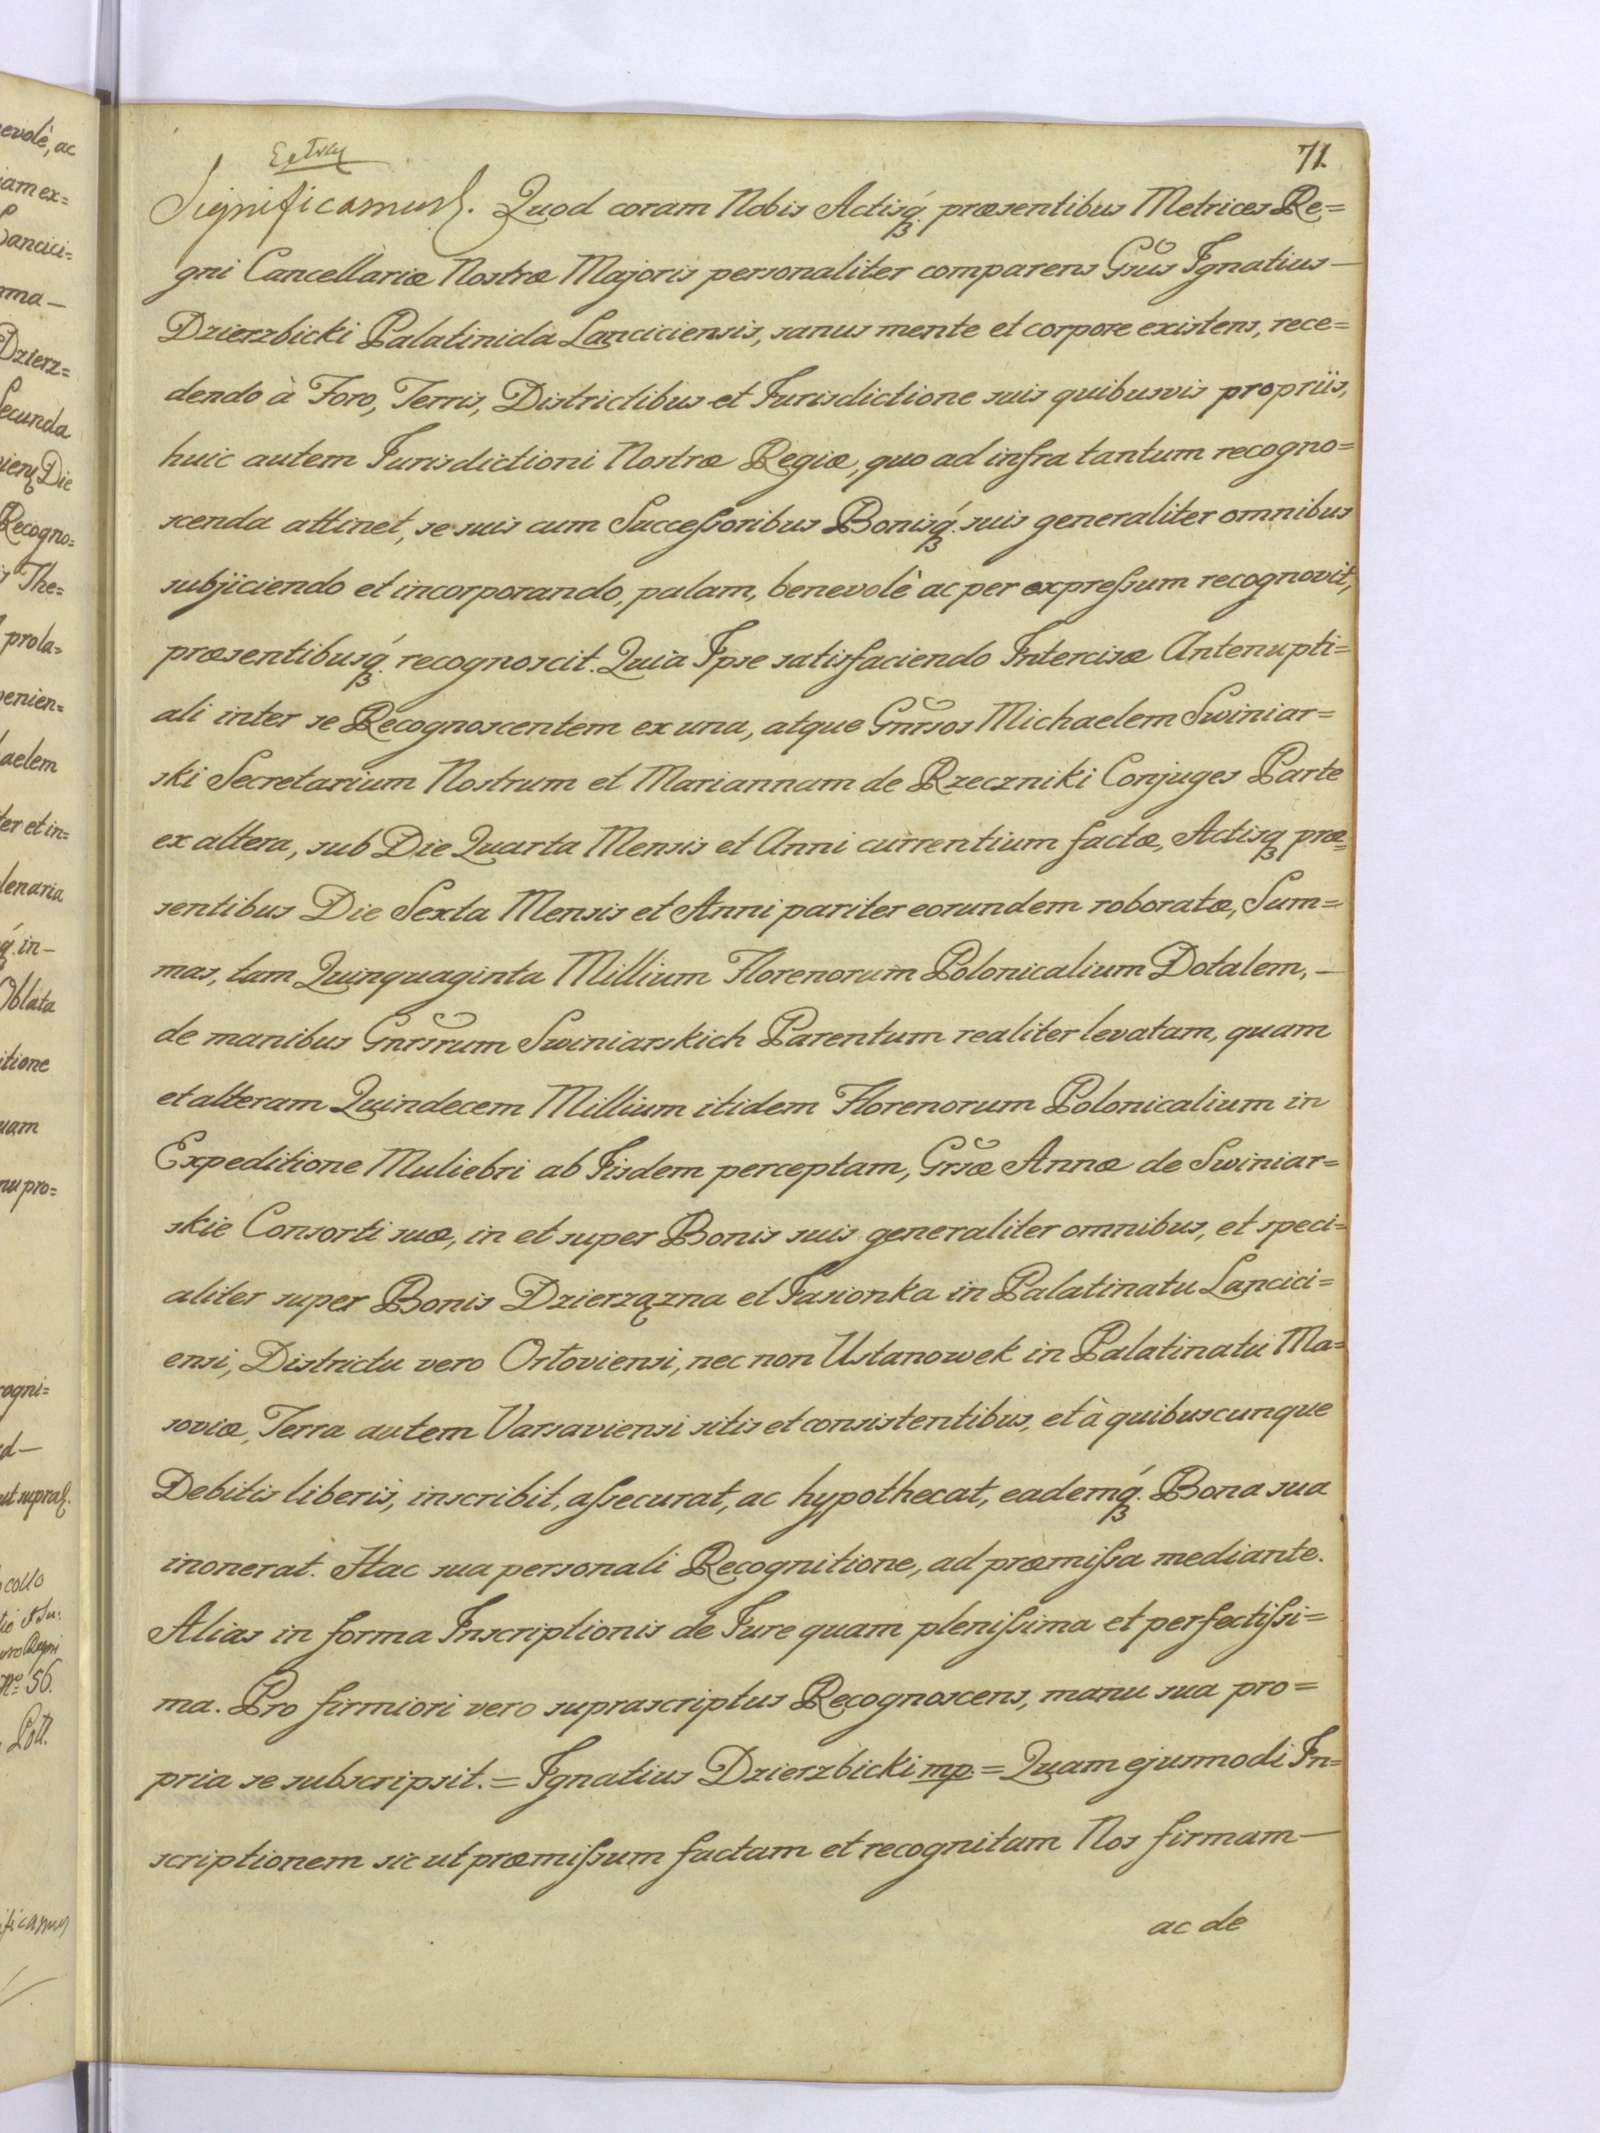 71.
Significamus. Quod coram Nobis Actisq́ præsentibus Metrices Re=
gni Cancellariæ Nostræ Majoris personaliter comparens Gsus Ignatius—
Dzierzbicki Palatinida Lanciciensis, sanus mente et corpore existens, rece=
dendo à Foro, Terris, Districtibus et Jurisdictione suis quibusvis propriis,
huic autem Jurisdictioni Nostræ Regiæ, quo ad infra tantum recogno=
scenda attinet, se suis cum Successoribus Bonisq́ suis generaliter omnibus
subjiciendo et incorporando, palam, benevolè ac per expressum recognovit,
præsentibusq́ recognoscit. Quia Ipse satisfaciendo Intercisæ Antenupti=
ali inter se Recognoscentem ex una, atque Gnrsos Michaelem Swiniar=
ski Secretarium Nostrum et Mariannam de Rzeczniki Conjuges Parte
ex altera, sub Die Quarta Mensis et Anni currentium factæ, Actisq præ=
sentibus Die Sexta Mensis et Anni pariter eorundem roboratæ, Sum=
mas, tam Quinquaginta Millium Florenorum Polonicalium Dotalem,—
de manibus Gnrsrum Swiniarskich Parentum realiter levatam, quam
et alteram Quindecem Millium itidem Florenorum Polonicalium in
Expeditione Muliebri ab Iisdem perceptam, Grsæ Annæ de Swiniar=
skie Consorti suæ, in et super Bonis suis generaliter omnibus, et speci=
aliter super Bonis Dzierzązna et Jasionka in Palatinatu Lancici=
ensi, Districtu vero Orłoviensi, nec non Ustanowek in Palatinatu Ma=
soviæ, Terra autem Varsaviensi sitis et consistentibus, et à quibuscunque
Debitis liberis, inscribit, assecurat, ac hypothecat, eademq́ Bona sua
inonerat. Hac sua personali Recognitione, ad præmissa mediante.
Alias in forma Inscriptionis de Jure quam plenissima et perfectissi=
ma. Pro firmiori vero suprascriptus Recognoscens, manu sua pro=
pria se subscripsit. = Ignatius Dzierzbicki mp. = Quam ejusmodi In=
scriptionem sic ut præmissum factam et recognitam Nos firmam—
ac de